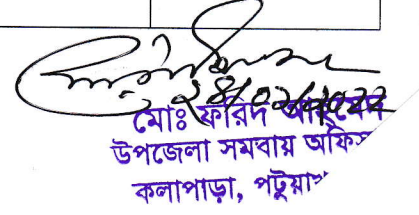 ২৪/০২/২০২২
মোঃ ফরিদ আহমেদ
উপজেলা সমবায় অফিস
কলাপাড়া, পটুয়া